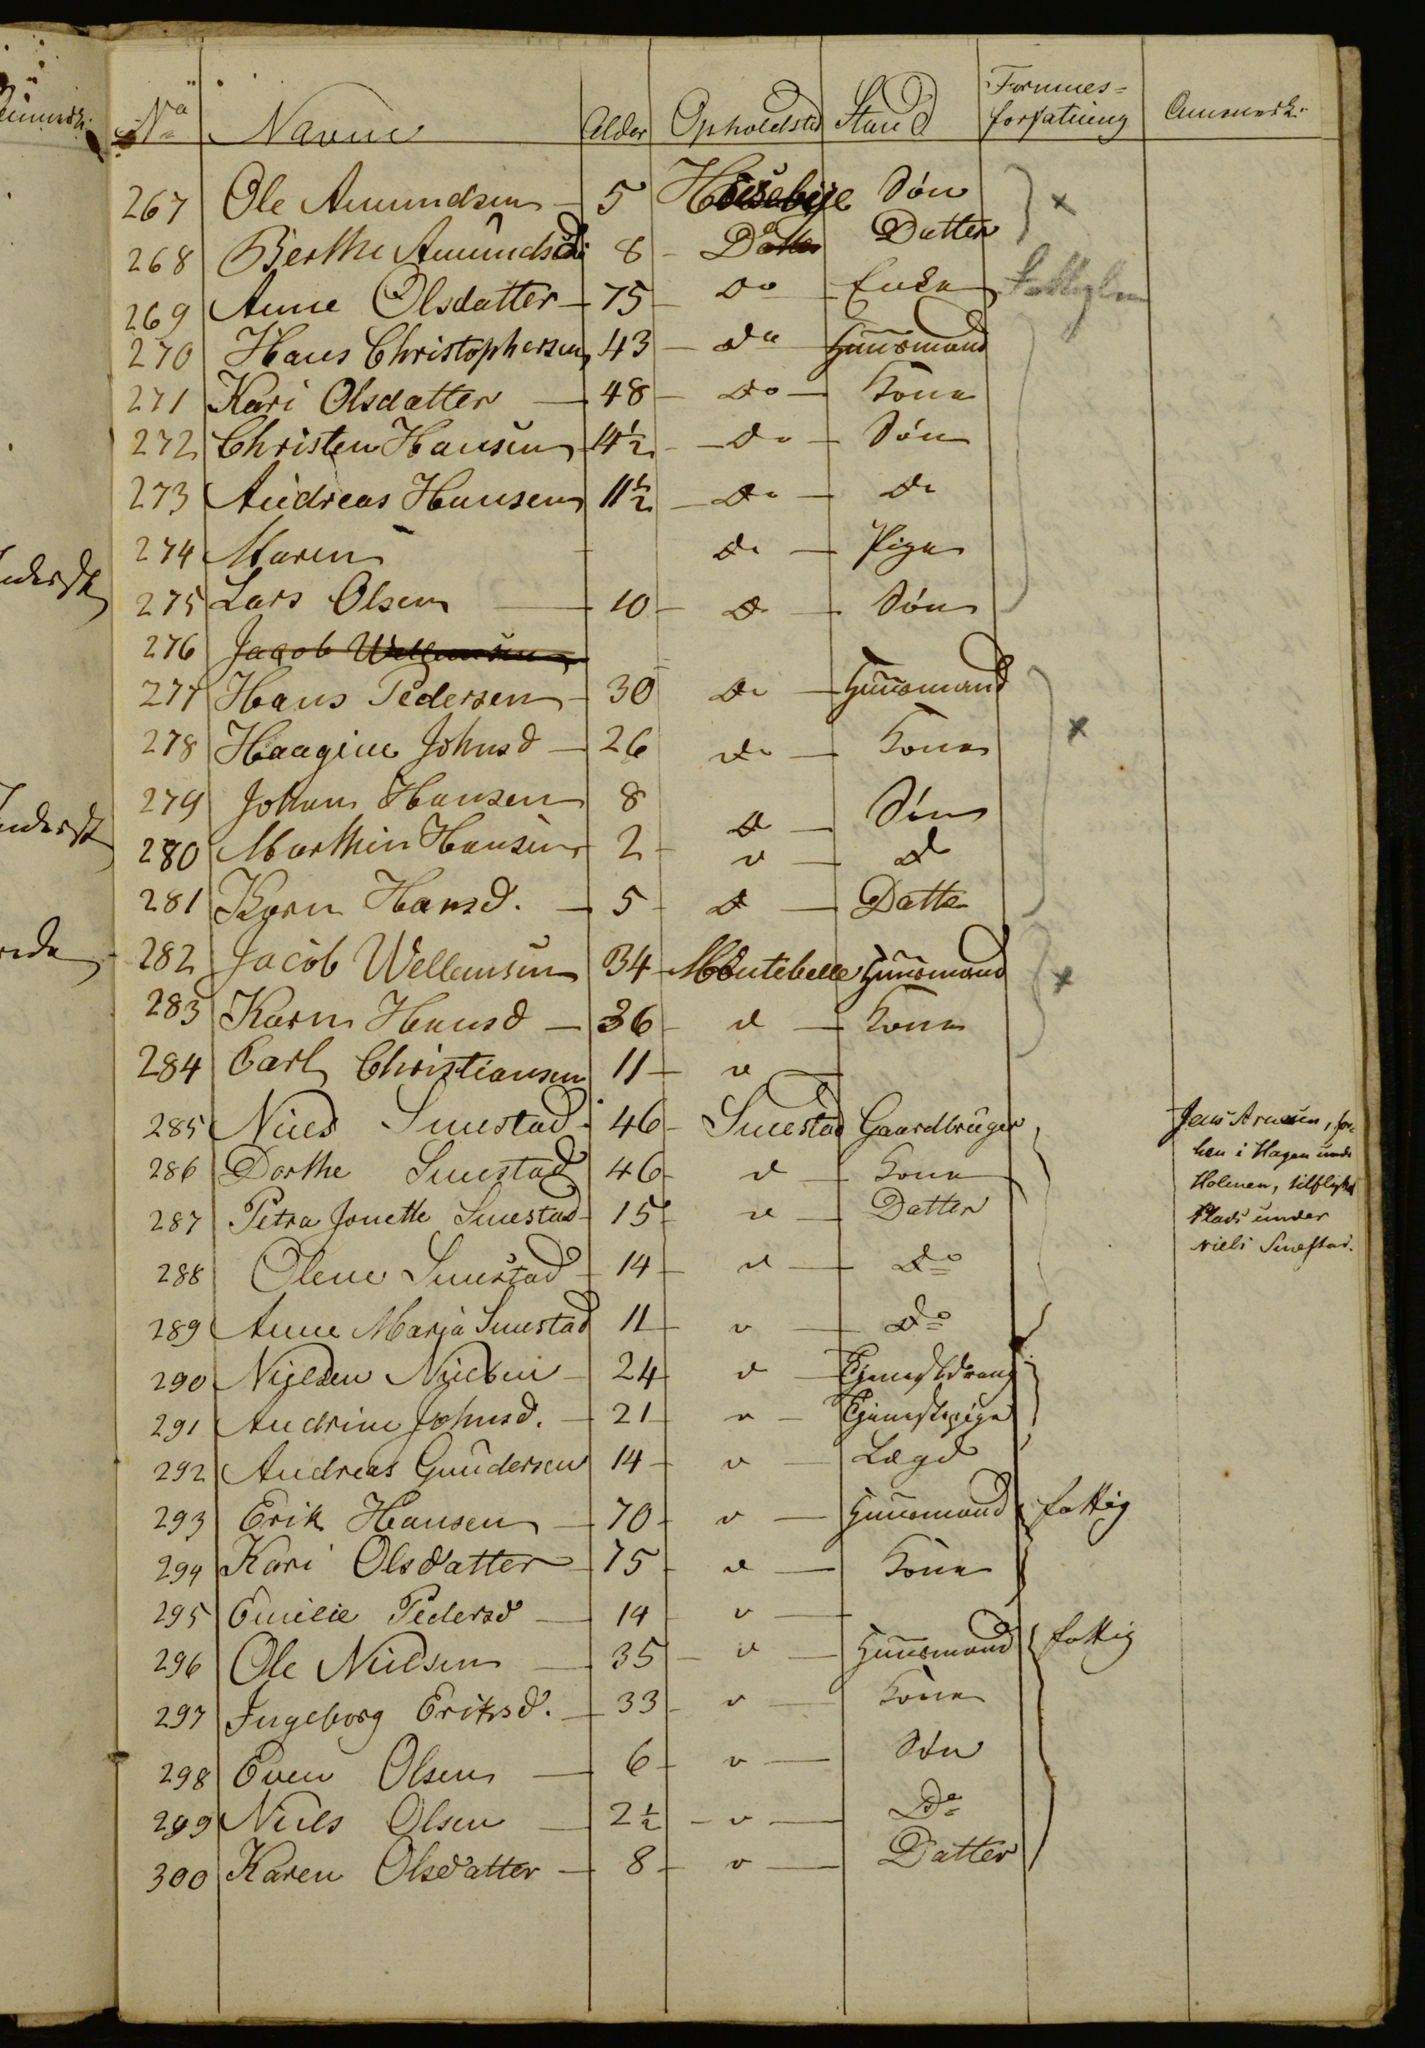 No Navne Alder Opholdsted Stand Formues= forfatning Anmærk:
267 Ole Amundsen 5 Huusebye Søn
268 Berthe Amundsd: 8 Do Datter
269 Anne Olsdatter 75 do Enke
270 Hans Christophersen 43 do Huusmand
271 Kari Olsdatter 48 do Kone
272 Christen Hansen 4½ do Søn
273 Andreas Hansen 11½ do do
274 Maren do Pige
275 Lars Olsen 10 do Søn
276 Jacob Wellemsen
277 Hans Pedersen 30 do Huusmand
278 Haagine Johnsd 26 do Kone
279 Johan Hansen 8 do Søn
280 Marthin Hansen 2 " do
281 Karn Hansd. 5 do Datte
282 Jacob Wellemsen 34 Montebelle Huusmand
283 Karn Hansd 36 d Kone
284 Carl Christiansen 11 "
285 Niels Smestad 46 Smestad Gaardbruger Jens Arnesen, for-
286 Dorthe Smestad 46 d Kone hen i Hagen under
287 Petra Jonette Smestad 15 d Datter Holmen, tilflyttet Plads under
288 Olene Smestad 14 d do Niels Smestad.
289 Anne Maria Smestad 11 " do
290 Nielsen Nielsen 24 d Tjenestdreng
291 Andrine Johnsd. 21 " Tjenestepige
292 Andreas Gundersen 14 " Lægd
293 Erik Hansen 70 " Huusmand fattig
294 Kari Olsdatter 75 d Kone
295 Emilie Pedersd 14 "
296 Ole Nielsen 35 " Huusmand fattig
297 Ingeborg Eriksd. 33 " Kone
298 Even Olsen 6 " Søn
299 Niels Olsen 2½ " Do
300 Karen Olsdatter 8 " Datter